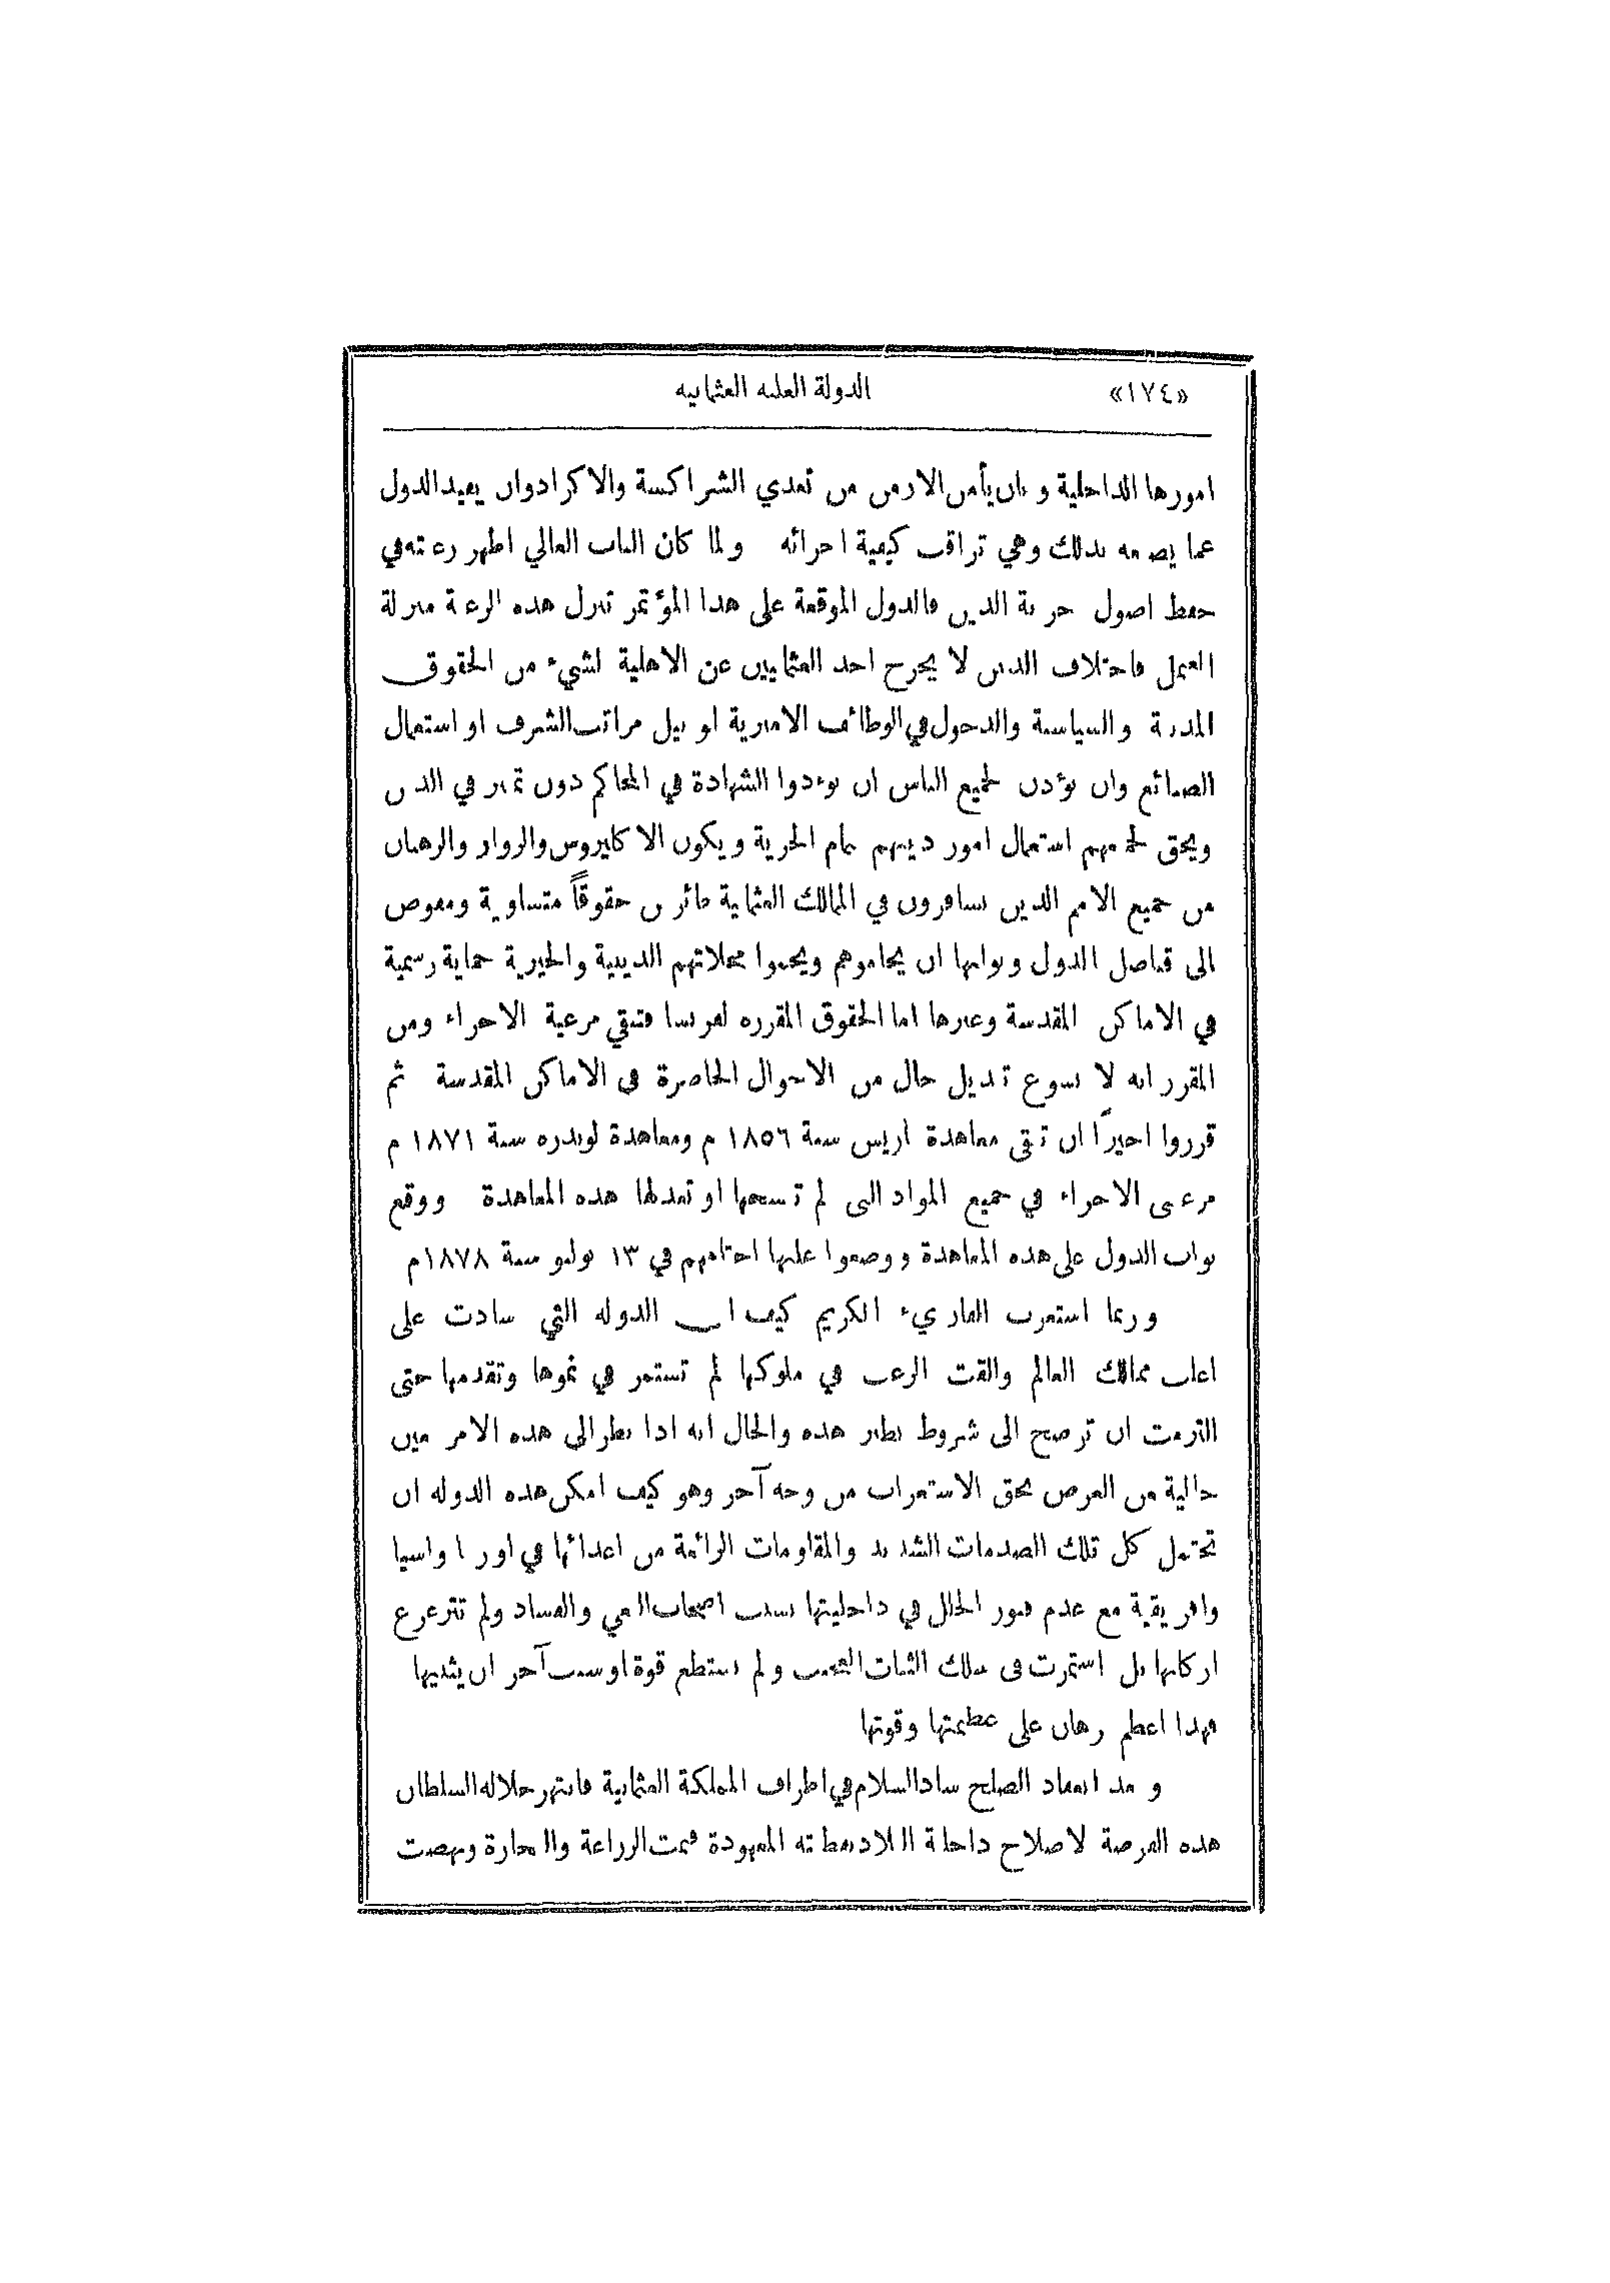 «١٧٤» الدولة العليه العثمانيه
امورها الداخلية وبان يأمن الارمن من تعدي الشراكسة والاكراد وان يفيد الدول
عما يصنعه بذلك وهي تراقب كيفية اجرائه ولما كان الباب العالي اظهر رغبته في
حفظ اصول حرية الدين فالدول الموقعة على هذا المؤتمر تنزل هذه الرغبة منزلة
العمل فاختلاف الدين لا يخرج احد العثمانيين عن الاهلية لشيء من الحقوق
المدنية والسياسة والدخول في الوظائف الاميرية او نيل مراتب الشرف او استعمال
الصنائع وان يؤذن لجميع الناس ان يؤدوا الشهادة في المحاكم دون تمييز في الدين
ويحق لجميعهم استعمال امور دينهم بتمام الحرية ويكون الاكليروس والزوار والرهبان
من جميع الامم الذين يسافرون في الممالك العثمانية حائزين حقوقاً متساوية ومفوض
الى قناصل الدول ونوابها ان يحاموهم ويحموا محلاتهم الدينية والخيرية حماية رسمية
في الاماكن المقدسة وغيرها اما الحقوق المقرره لفرنسا فتبقى مرعية الاجراء ومن
المقرر انه لا يسوغ تبديل حال من الاحوال الحاضرة في الاماكن المقدسة ثم
قرروا اخيراً ان تبقى معاهدة باريس سنة ١٨٥٦ م ومعاهدة لوندره سنة ١٨٧١ م
مرعى الاجراء في جميع المواد التي لم تنسخها او تعدلها هذه المعاهدة ووقع
نواب الدول على هذه المعاهدة ووضعوا عليها اختامهم في ١٣ يوليو سنة ١٨٧٨م
وربما استغرب القاريء الكريم كيف ان الدوله التي سادت على
اغلب ممالك العالم والقت الرعب في ملوكها لم تستمر في نموها وتقدمها حتى
التزمت ان ترضخ الى شروط نظير هذه والحال انه اذا نظر الى هذه الامر بعين
خالية من الغرض يحق الاستغراب من وجه آخر وهو كيف امكن هذه الدوله ان
تحتمل كل تلك الصدمات الشديد والمقاومات الزائدة من اعدائها في اوربا واسيا
وافريقية مع عدم فتور الخلل في داخليتها بسبب اصحاب البغي والفساد ولم تتزعزع
اركانها بل استمرت في ذلك الثبات العجيب ولم تستطع قوة او سبب آخر ان يثنيها
فهذا اعظم برهان على عظمتها وقوتها
وبعد انعقاد الصلح ساد السلام في اطراف المملكة العثمانية فانتهز جلاله السلطان
هذه الفرصة لاصلاح داخلية البلاد بفطنته المعهودة فنمت الزراعة والتجارة ونهضت